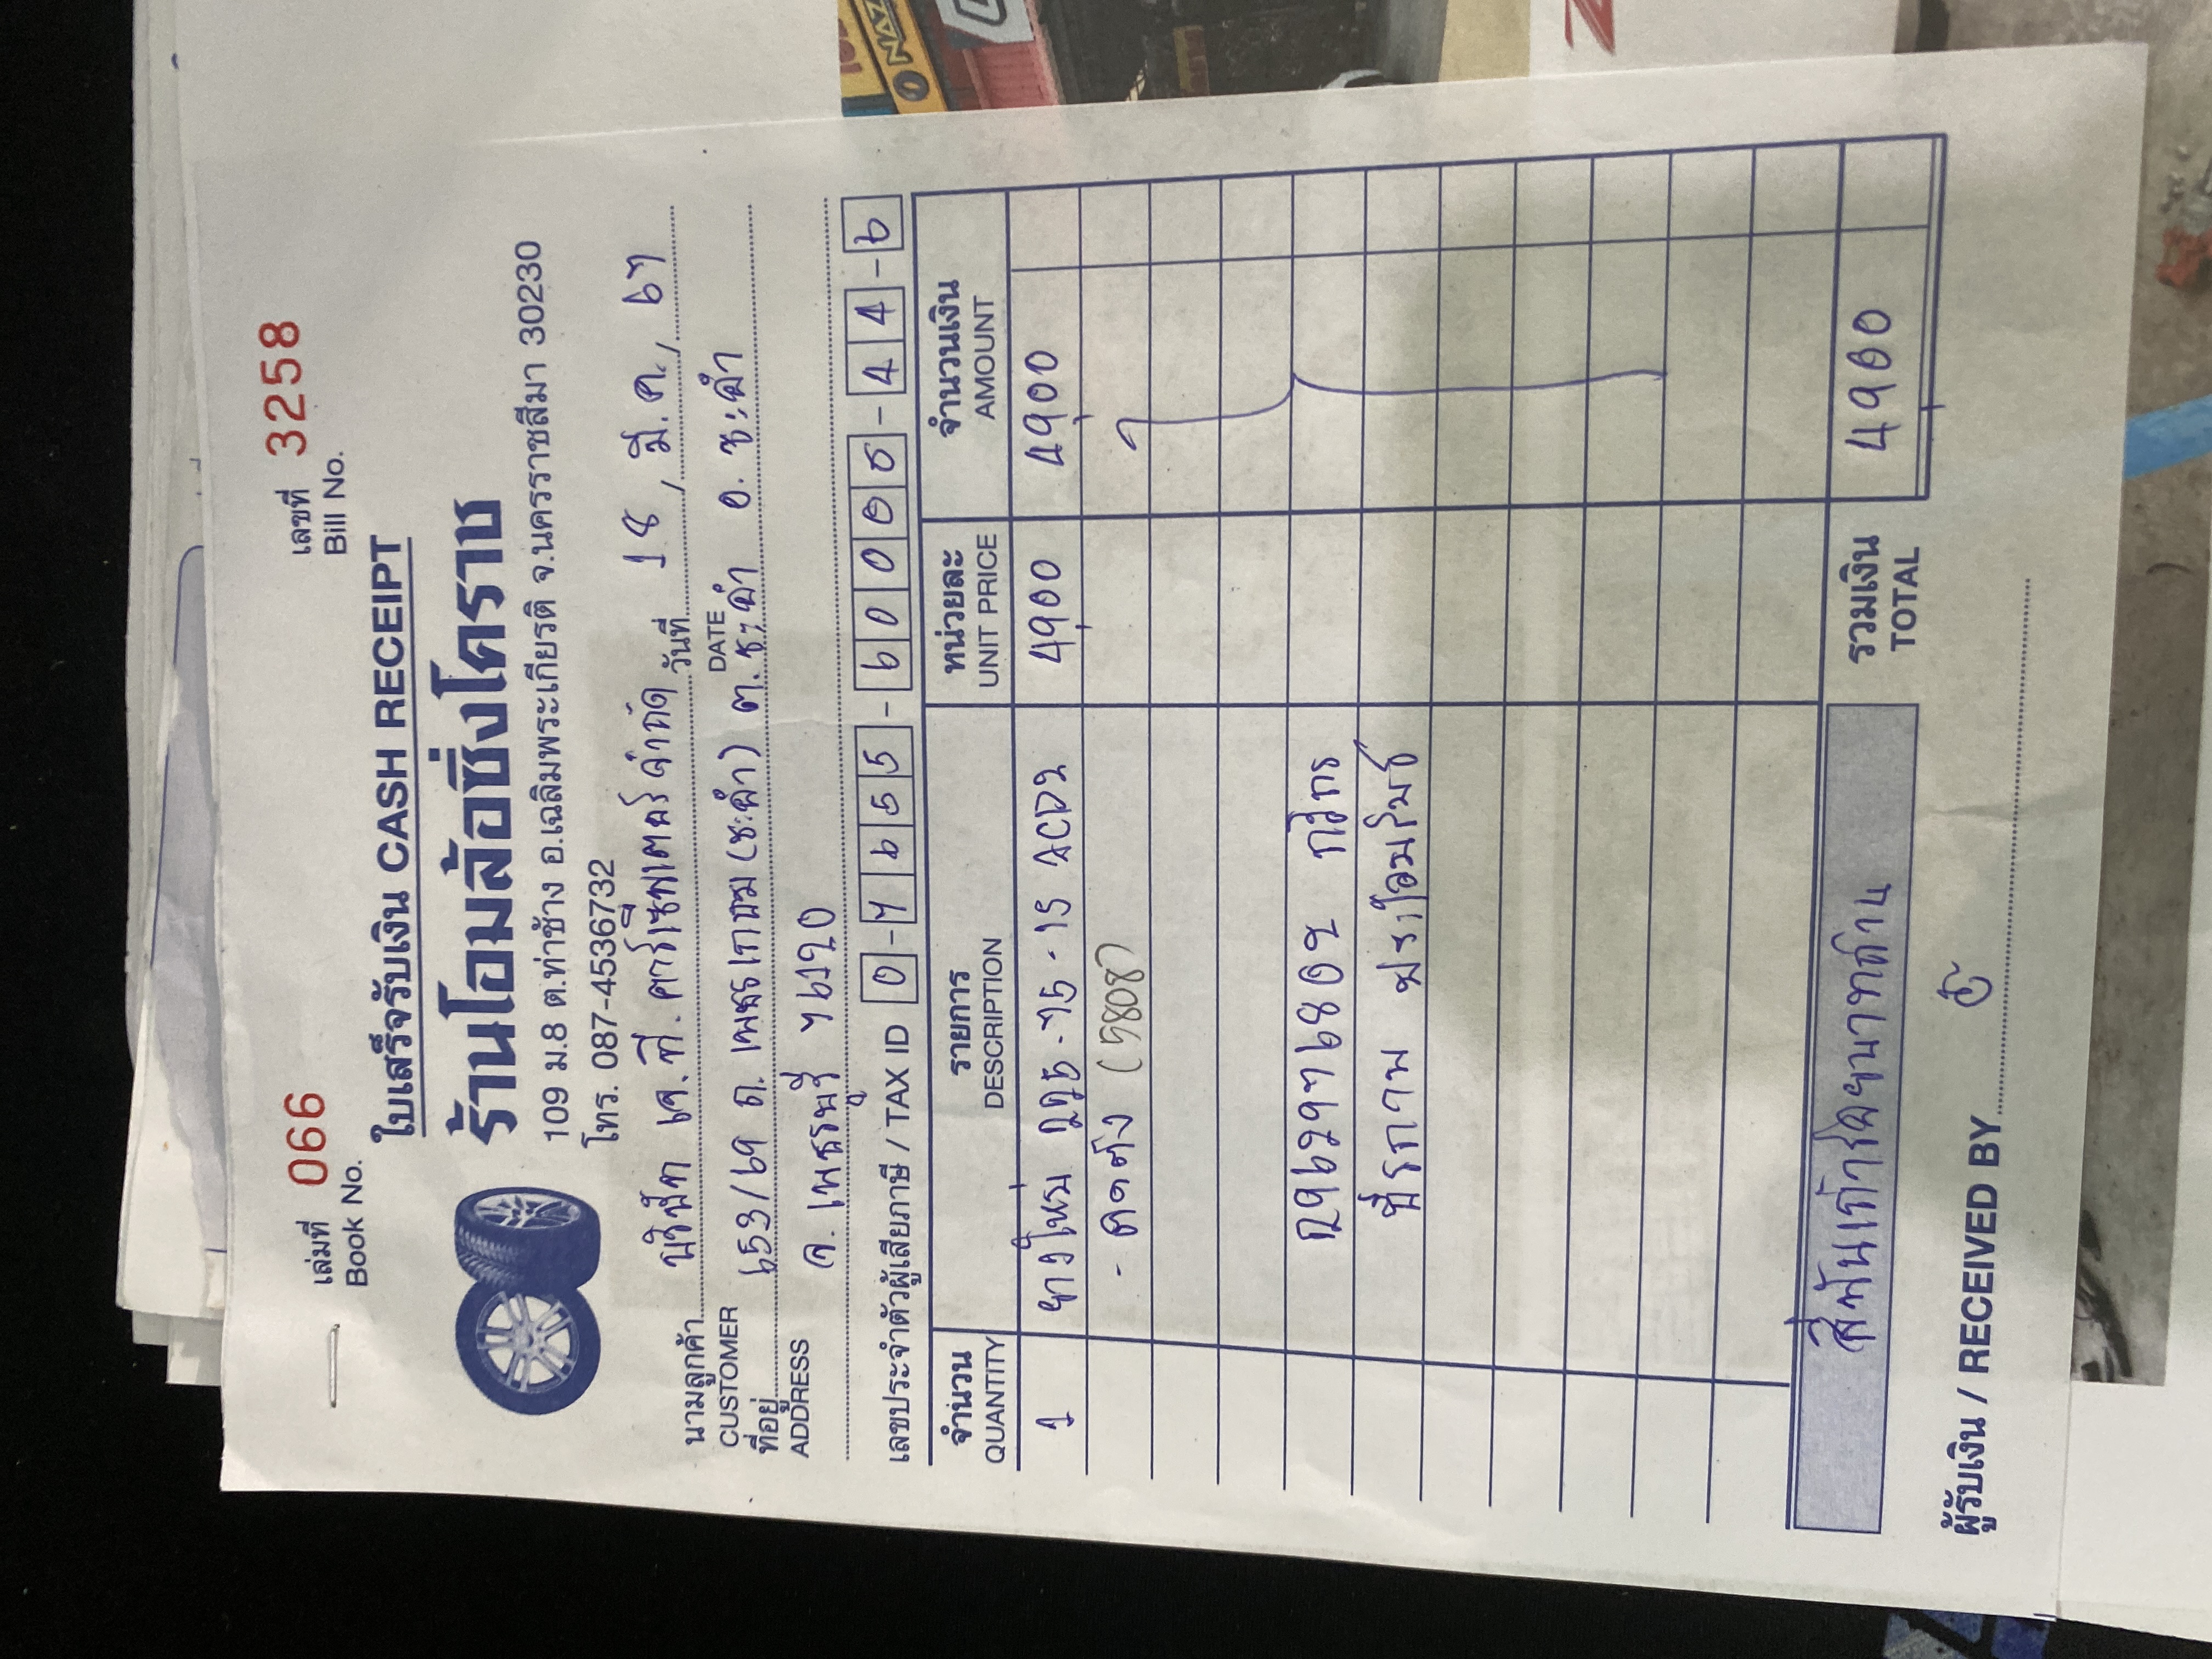 เล่มที่ 066 เลขที่ 3258
Book No. Bill No.
ใบเสร็จรับเงิน CASH RECEIPT
ร้านโอมล้อซิ่งโคราช
109 ม.8 ต.ท่าช้าง อ.เฉลิมพระเกียรติ จ.นครราชสีมา 30230
โทร. 087-4536732
นามลูกค้า บริษัท เค.ที. คาร์เซฟเตอร์ จำกัด วันที่ 18, มี.ค., 67
CUSTOMER DATE
ที่อยู่ 653/69 ถ. เพชรเกษม (ชะอำ) ต. ชะอำ อ. ชะอำ
ADDRESS จ. เพชรบุรี 76120
เลขประจำตัวผู้เสียภาษี / TAX ID 0-7655-60000-44-6
จำนวน รายการ หน่วยละ จำนวนเงิน
QUANTITY DESCRIPTION UNIT PRICE AMOUNT
1 ยางใหม่ 225-75-15 4900 4900
- ติดตั้ง (5808)
0962976802 กวีกร
พี่รถาม
สี่พันเก้าร้อยบาทถ้วน รวมเงิน 4900
TOTAL
ผู้รับเงิน / RECEIVED BY